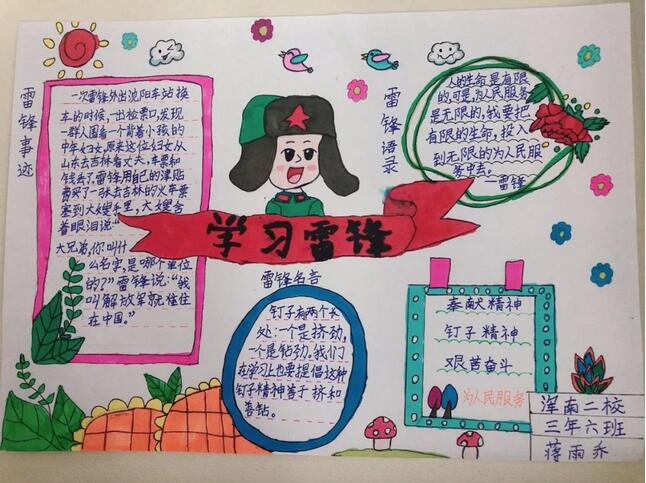 雷锋事迹
一次雷锋外出沈阳车站换
车的时候,一出检票口,发现
一群人围着一个背着小孩的
中年妇女,原来这位妇女从
山东去吉林看丈夫,车票和
钱丢了。雷锋用自己的津贴
费买了一张去吉林的火车票
塞到大嫂手里,大嫂含
着眼泪说:“
大兄弟,你叫什
么名字,是哪个单位
的?”雷锋说:“我
叫解放军就住
在中国。”
学习雷锋
雷锋语录
人的生命是有限
的,可是,为人民服务
是无限的,我要把
有限的生命,投入
到无限的为人民服
务中去。
—雷锋
雷锋名言
钉子有两个长
处:一个是挤劲,
一个是钻劲。我们
在学习上也要提倡这种
钉子精神善于挤和
善钻。
奉献精神
钉子精神
艰苦奋斗
为人民服务
浑南二校
三年六班
蒋雨乔